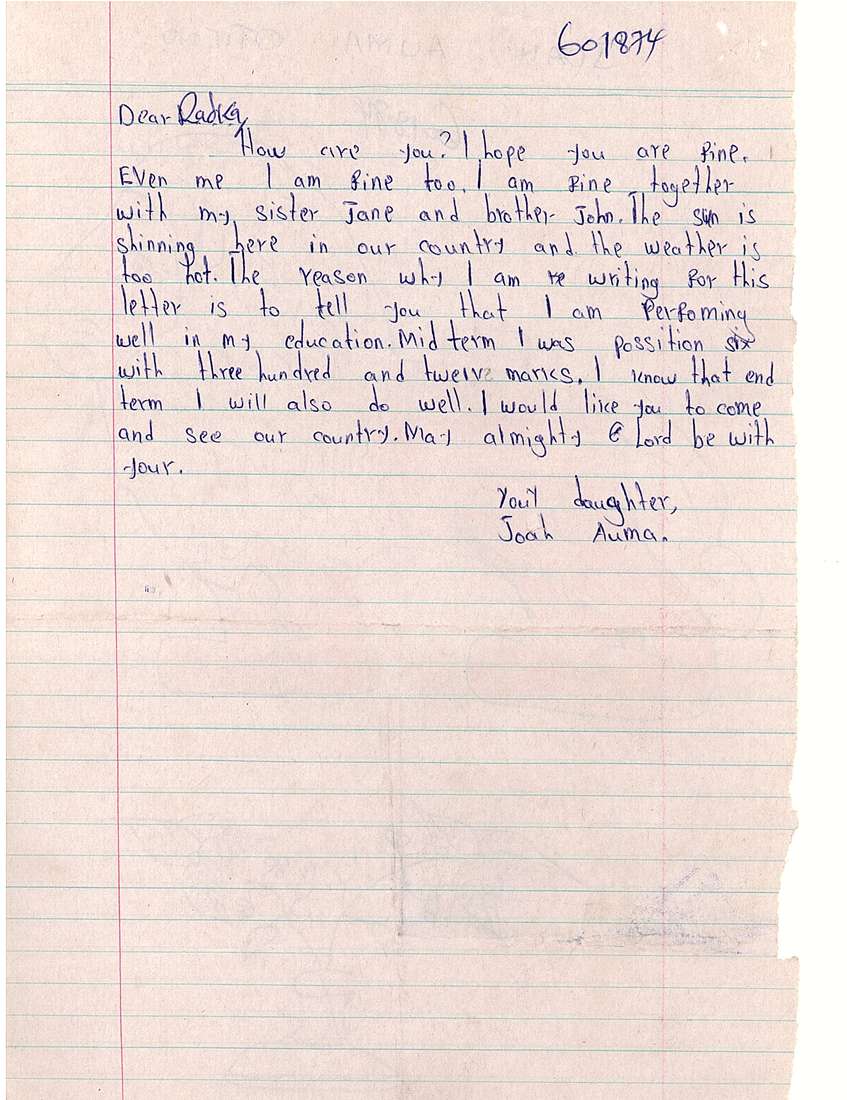 601874
Dear Radka,
How are you? I hope you are fine.
Even me I am fine too. I am fine together
with my sister Jane and brother John. The sun is
shinning here in our country and the weather is
too hot. The reason why I am re writing for this
letter is to tell you that I am Perfoming
well in my education. Mid term I was possition six
with three hundred and twelve marks. I know that end
term I will also do well. I would like you to come
and see our country. May almighty Lord be with
your.
Your daughter,
Joah Auma.